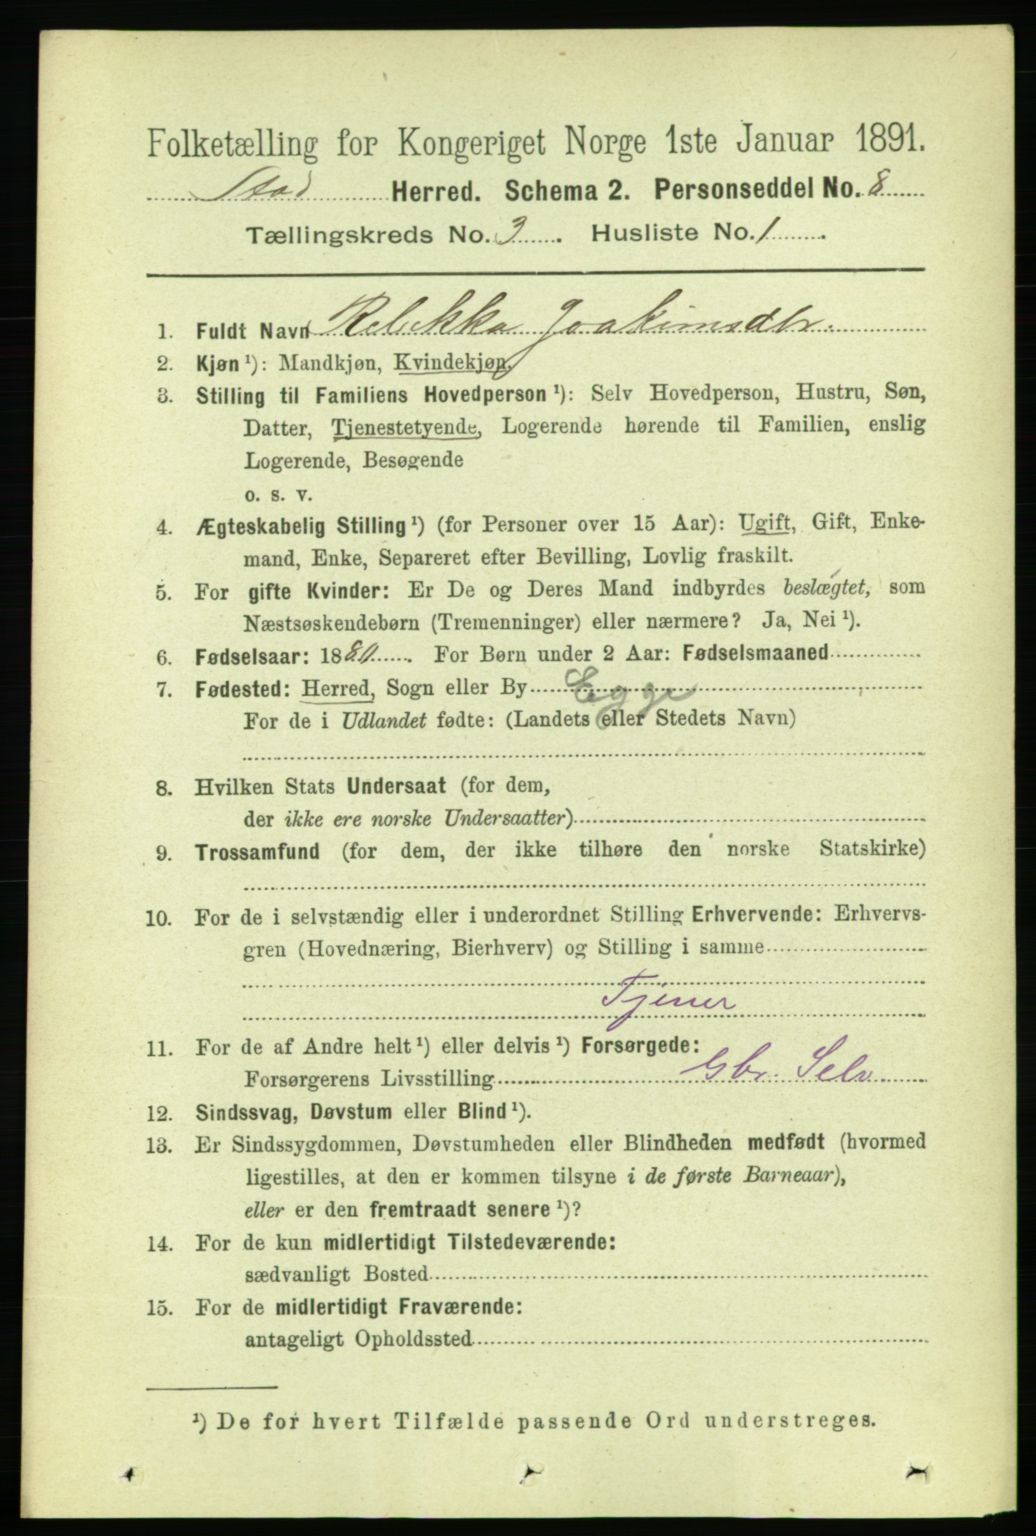 Folketælling for Kongeriget Norge 1ste Januar 1891.
Stod Herred. Schema 2. Personseddel No. 8
Tællingskreds No. 3. Husliste No. 1.
1. Fuldt Navn Rebekka Joakimsdtr.
2. Kjøn ¹): Mandkjøn, Kvindekjøn.
3. Stilling til Familiens Hovedperson ¹): Selv Hovedperson, Hustru, Søn,
Datter, Tjenestetyende, Logerende hørende til Familien, enslig
Logerende, Besøgende
o. s. v.
4. Ægteskabelig Stilling ¹) (for Personer over 15 Aar): Ugift, Gift, Enke-
mand, Enke, Separeret efter Bevilling, Lovlig fraskilt.
5. For gifte Kvinder: Er De og Deres Mand indbyrdes beslægtet, som
Næstsøskendebørn (Tremenninger) eller nærmere? Ja, Nei ¹).
6. Fødselsaar: 1880. For Børn under 2 Aar: Fødselsmaaned
7. Fødested: Herred, Sogn eller By Egge
For de i Udlandet fødte: (Landets eller Stedets Navn)
8. Hvilken Stats Undersaat (for dem,
der ikke ere norske Undersaatter)
9. Trossamfund (for dem, der ikke tilhøre den norske Statskirke)
10. For de i selvstændig eller i underordnet Stilling Erhvervende: Erhvervs-
gren (Hovednæring, Bierhverv) og Stilling i samme
Tjener
11. For de af Andre helt ¹) eller delvis ¹) Forsørgede:
Forsørgerens Livsstilling Gbr. Selv
12. Sindssvag, Døvstum eller Blind ¹).
13. Er Sindssygdommen, Døvstumheden eller Blindheden medfødt (hvormed
ligestilles, at den er kommen tilsyne i de første Barneaar),
eller er den fremtraadt senere ¹)?
14. For de kun midlertidigt Tilstedeværende:
sædvanligt Bosted
15. For de midlertidigt Fraværende:
antageligt Opholdssted
¹) De for hvert Tilfælde passende Ord understreges.